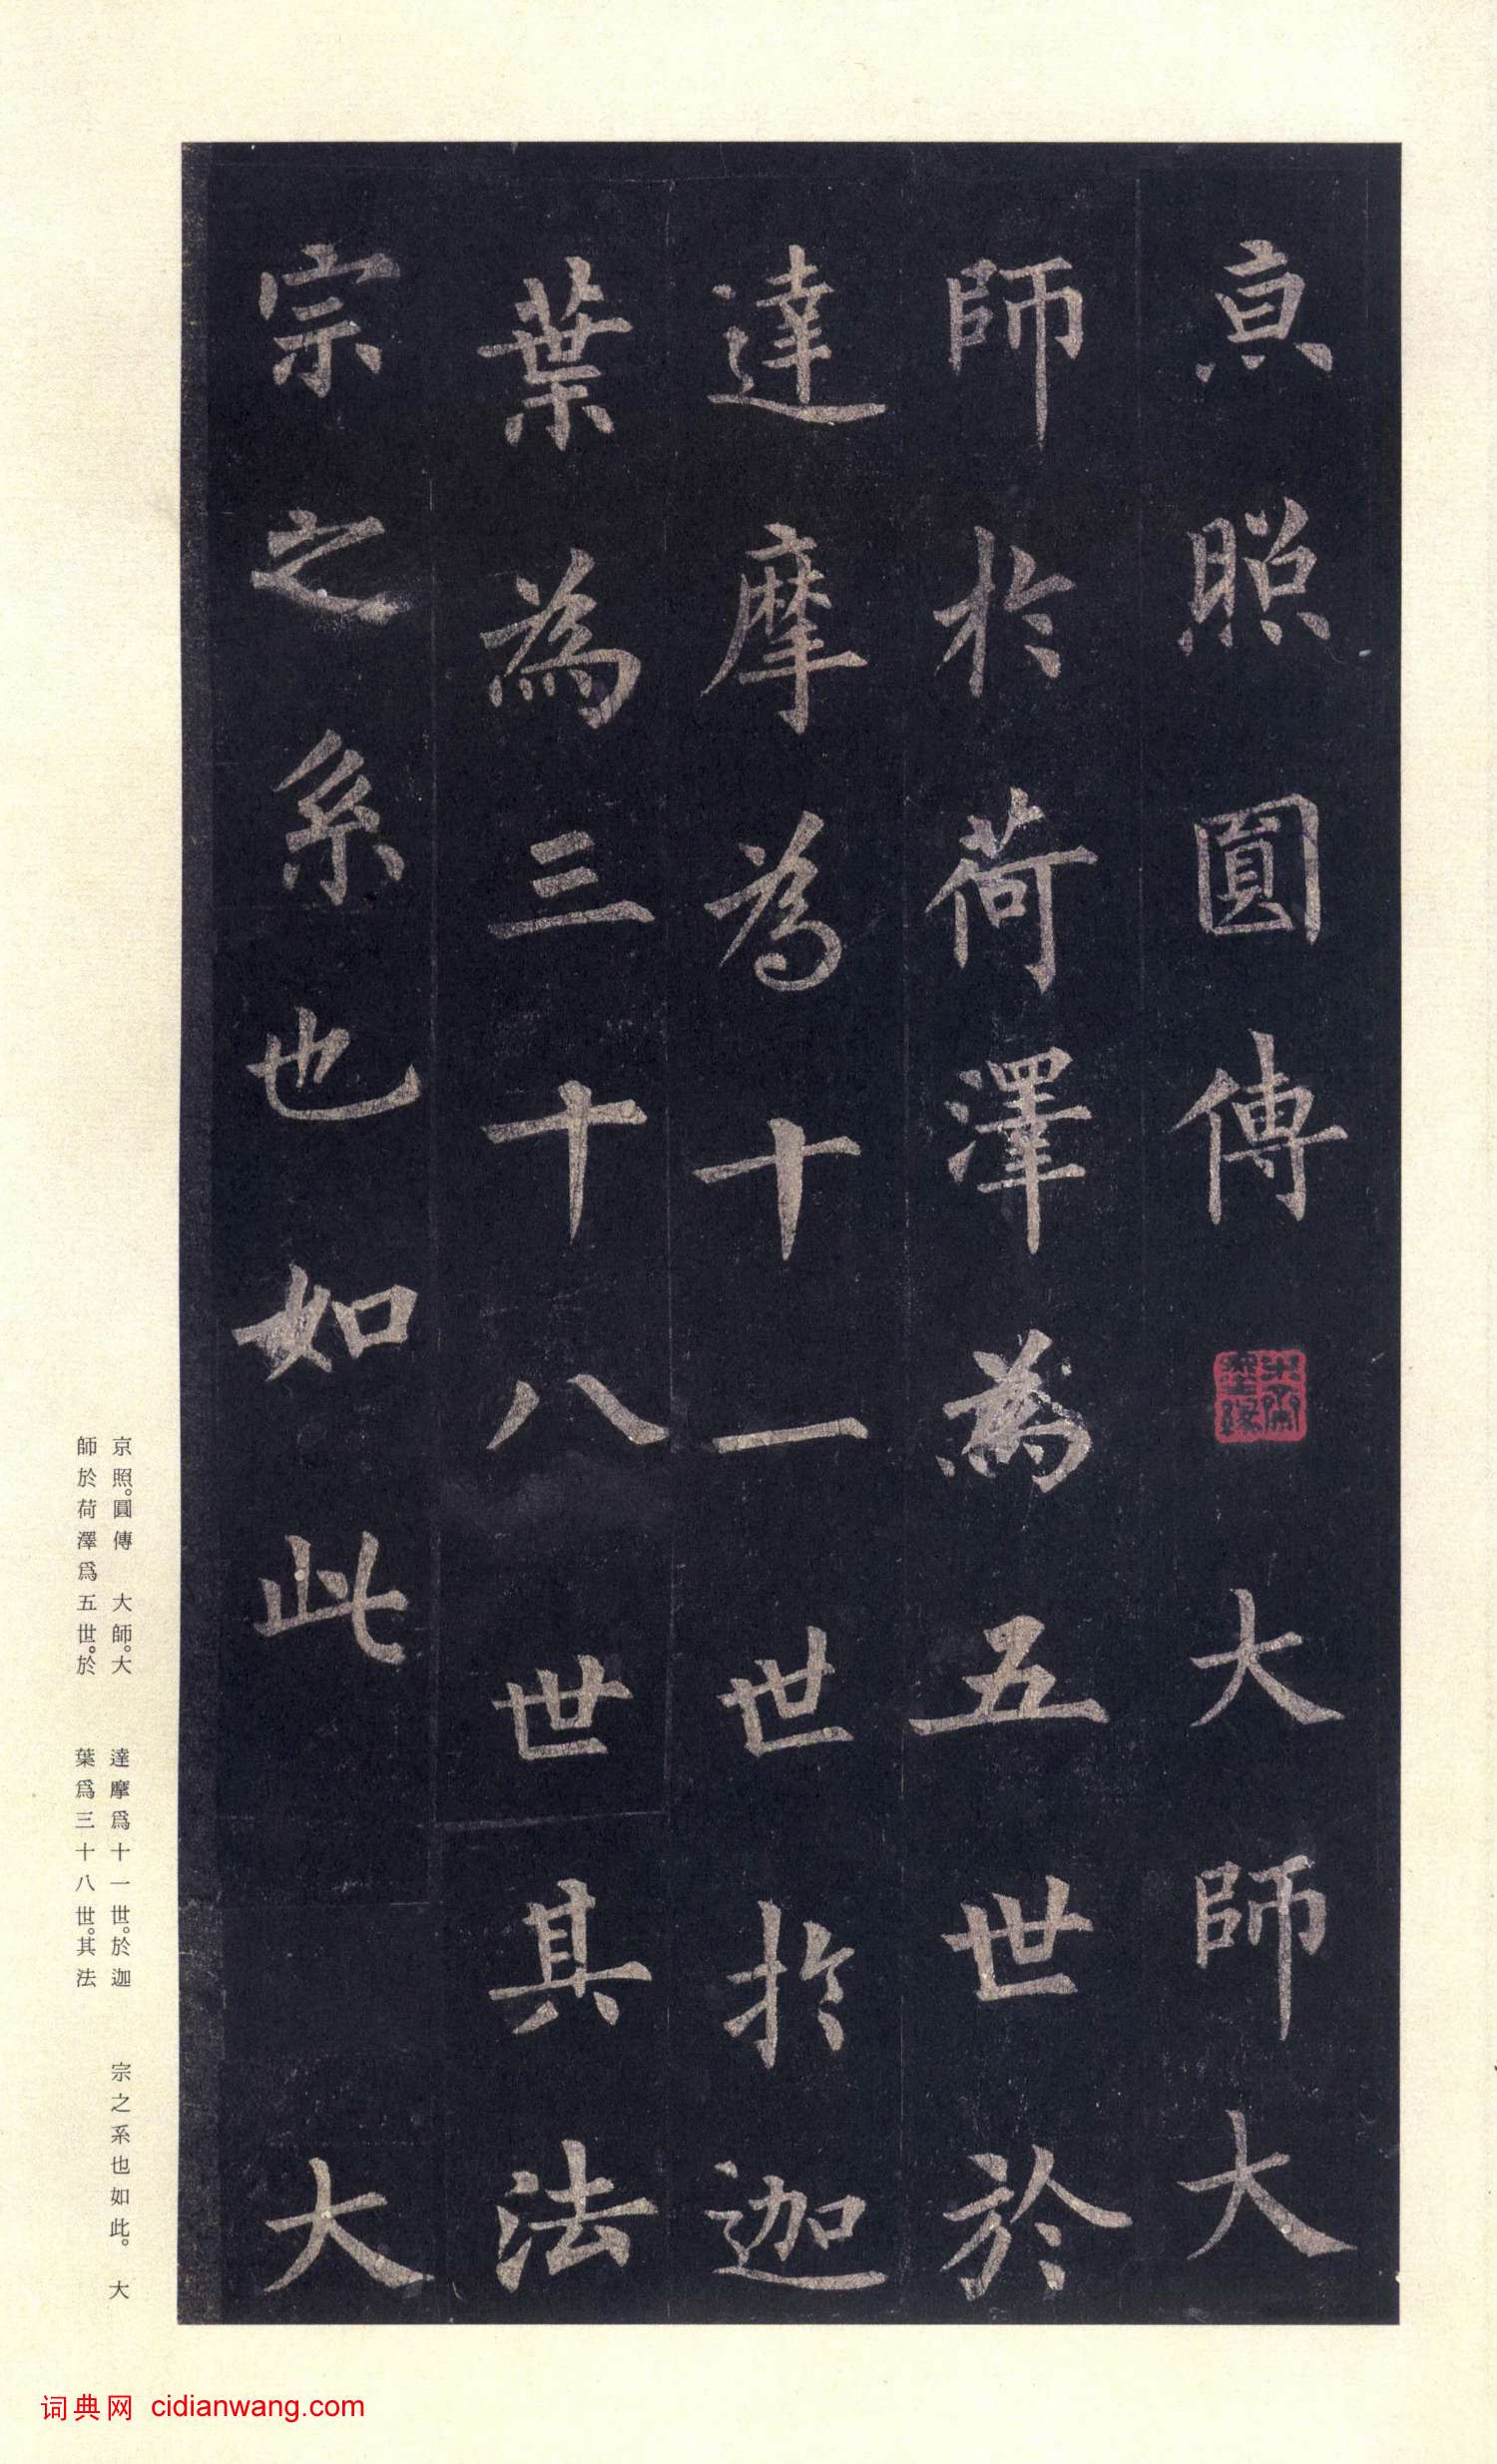 京照圓傳 大師大
師於荷澤為五世於
達摩為十一世於迦
葉為三十八世其法
宗之系也如此 大
京照。圓傳 大師。大
師於荷澤爲五世。於
達摩爲十一世。於迦
葉爲三十八世。其法
宗之系也如此。 大
词典网 cidianwang.com